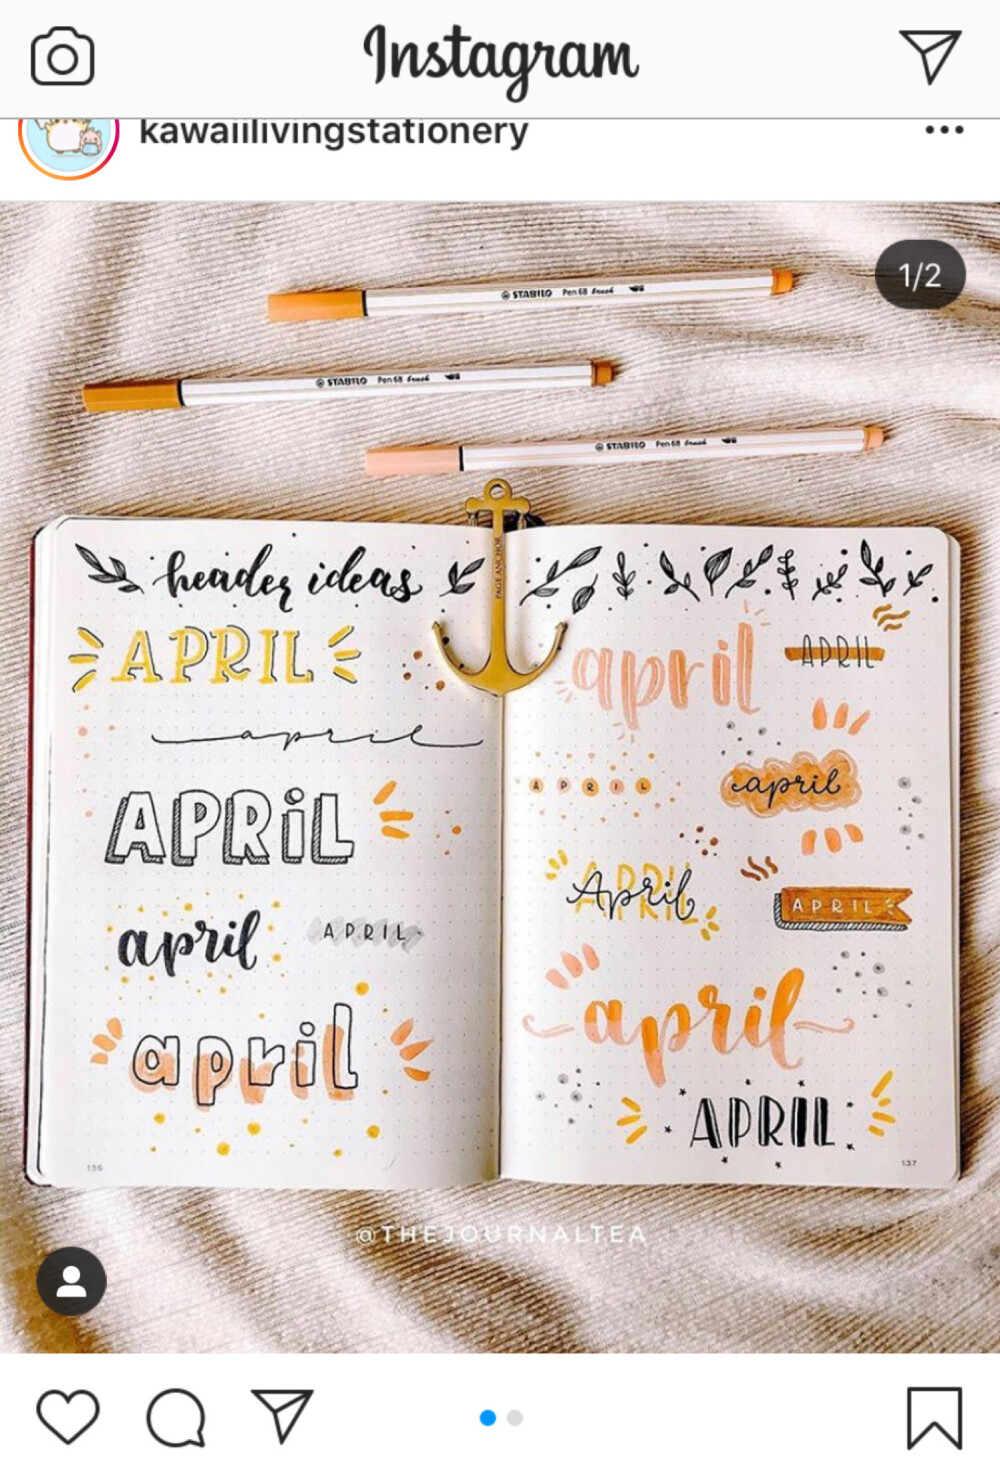 Instagram
kawaiilivingstationery
1/2
STABILO Pen 68 brush
STABILO Pen 68 brush
STABILO Pen 68 brush
PAGE ANCHOR
header ideas
APRIL
april
APRIL
april
APRIL
april
april
APRIL
APRIL
april
APRIL
April
APRIL
april
APRIL
136
137
@THEJOURNALTEA